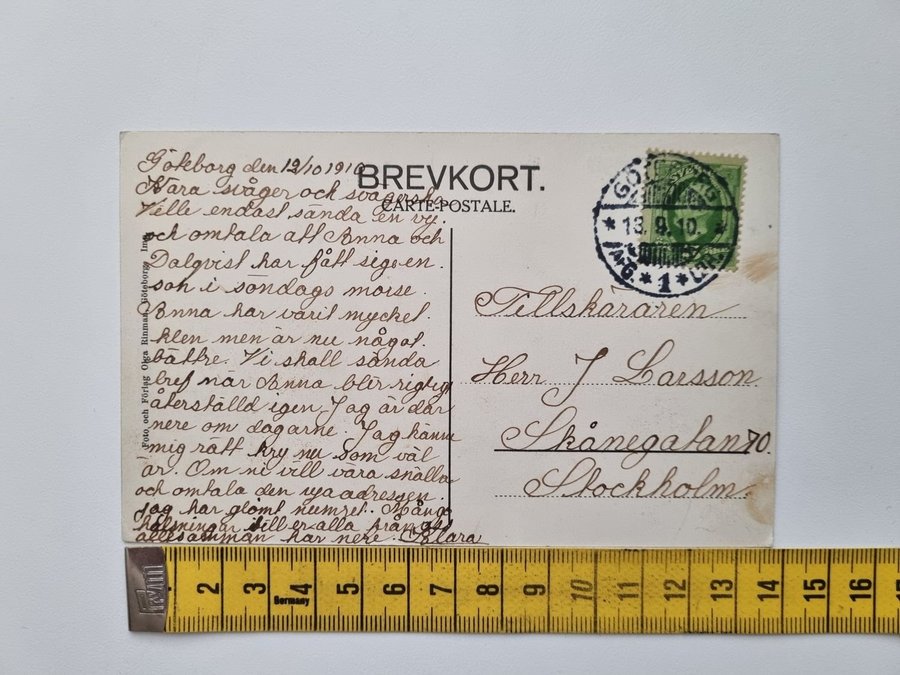 Göteborg den 12/10 1910
Kära svåger och svägerska
Ville endast sända en vy.
och omtala att Anna och
Dalqvist har fått sig en
son i söndags morse.
Anna har varit mycket
klen men är nu något
bättre. Vi skall sända
bref när Anna blir rigtigt
återställd igen. Jag är där
nere om dagarne. Jag känner
mig rätt kry nu som väl
är. Om ni vill vara snälla
och omtala den nya adressen.
jag har glömt numret. Många
hälsningar till er alla från oss
allesamman här nere. Klara
BREVKORT.
CARTE-POSTALE.
Foto. och Förlag Olga Rinman, Göteborg. Imp.
GÖTEBORG
* 13. 9. 10. *
* 1 *
Tillskäraren
Herr J Larsson.
Skånegatan 70.
Stockholm.
2 3 4 5 6 7 8 9 10 11 12 13 14 15 16
Germany